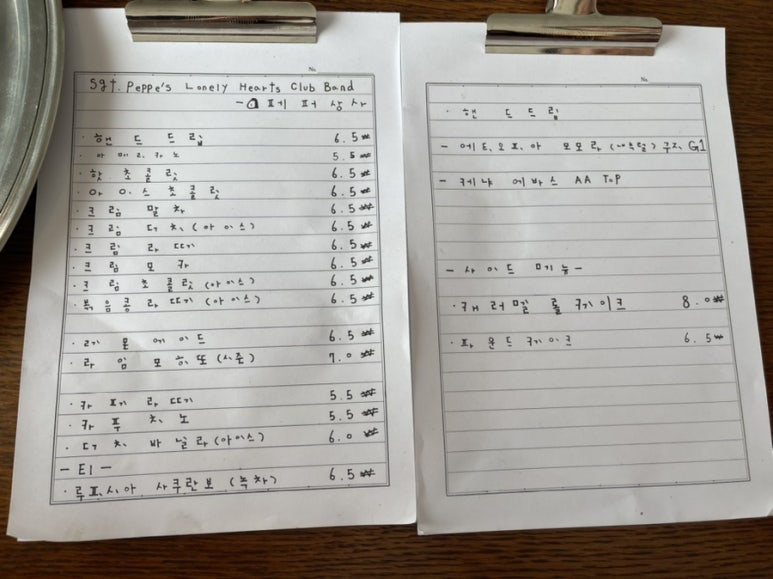 No.
Sgt. Peppe's Lonely Hearts Club Band
페퍼 상사
· 핸드드립 6.5₩
· 아메리카노 5.5₩
· 핫 초콜릿 6.5₩
· 아이스초콜릿 6.5₩
· 크림 말차 6.5₩
· 크림 더치 (아이스) 6.5₩
· 크림 라떼 6.5₩
· 크림 모카 6.5₩
· 크림 초콜릿 (아이스) 6.5₩
· 볶음콩 라떼 (아이스) 6.5₩
· 레몬에이드 6.5₩
· 라임 모히또 (시즌) 7.0₩
· 카페라떼 5.5₩
· 카푸치노 5.5₩
· 더치 바닐라 (아이스) 6.0₩
- 티 -
· 루피시아 사쿠란보 (녹차) 6.5₩
No.
· 핸드드립
- 에티오피아 모모라 (내추럴) 구지 G1
- 케냐 에바스 AA ToP
- 사이드 메뉴 -
· 캐러멜 롤케이크 8.0₩
· 파운드케이크 6.5₩